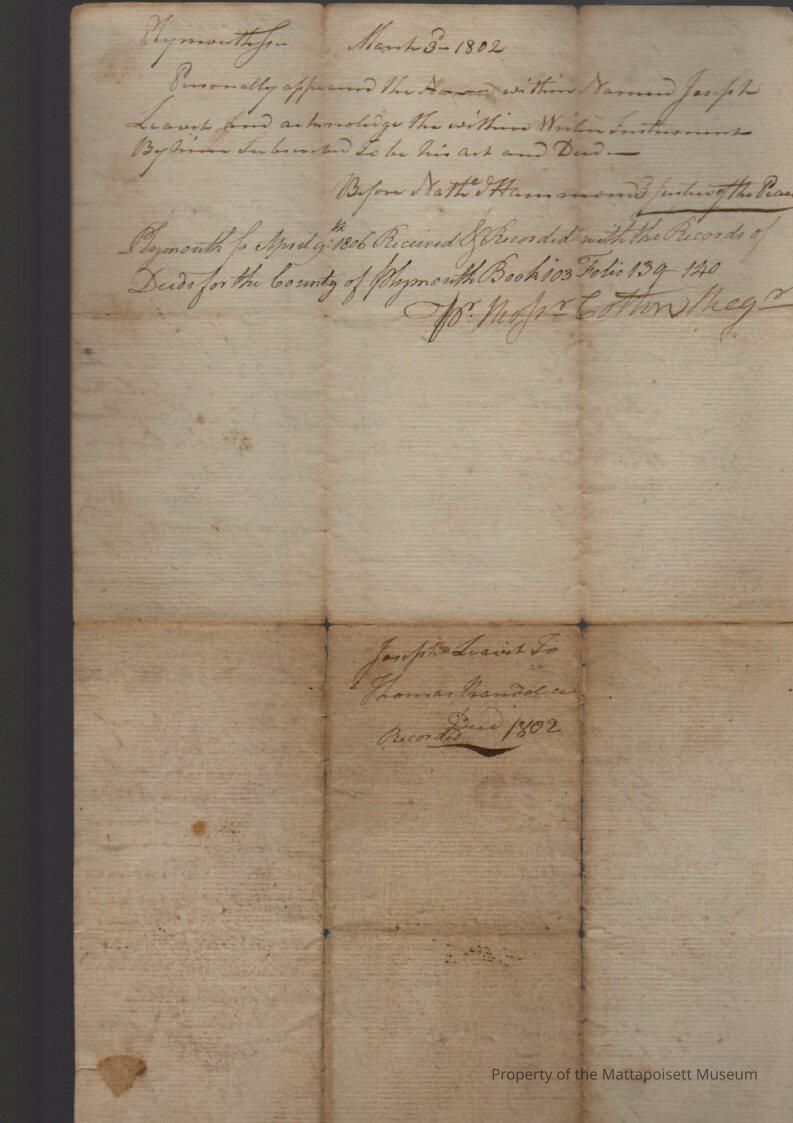 Plymouth ss March 3d 1802
Personally appeared the within Named Joseph
Leavit and acknolidge the within Written Instrument
By him Subscribed To be his act and Deed
Before Nathl Hammond Justice of the Peace
Plymouth ss April 9th 1806 Received & Recorded with the Records of
Deeds for the County of Plymouth Book 103 Folio 139 140
Pr. Rossr Cotton Regr
Joseph Leavit To
Thomas Randal
Deed 1802
Recorded
Property of the Mattapoisett Museum